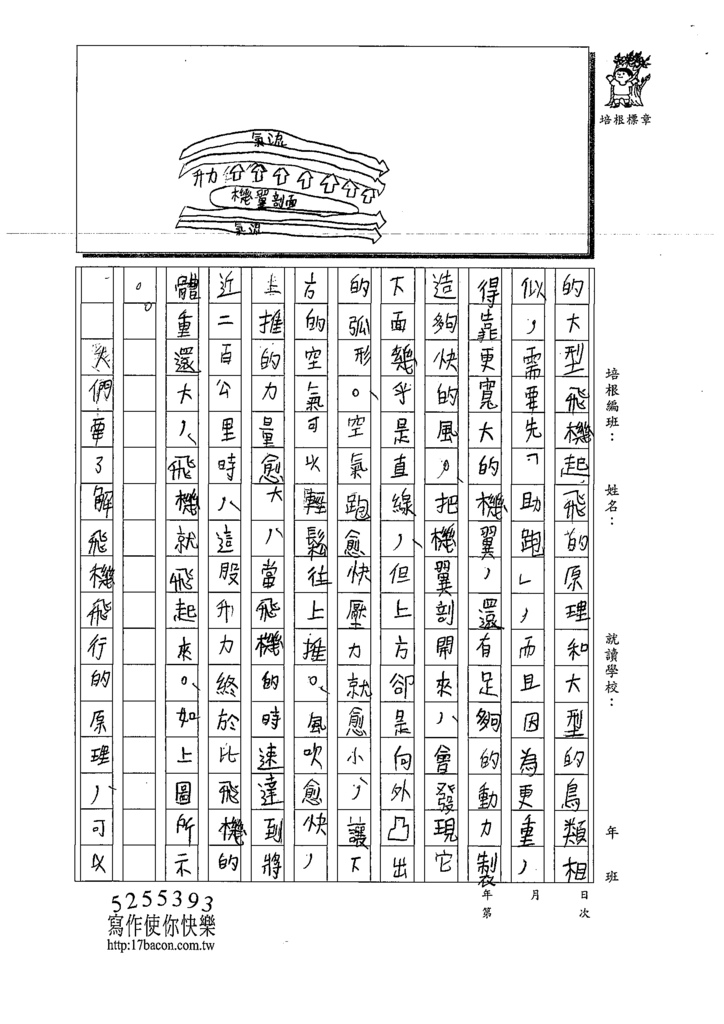 培根標章
氣流
升力
機翼剖面
氣流
培根編班：
姓名：
就讀學校：
年
班
日次
月
年第
的大型飛機起飛的原理和大型的鳥類相
似，需要先「助跑」，而且因為更重，
得靠更寬大的機翼，還有足夠的動力製
造夠快的風，把機翼剖開來，會發現它
下面幾乎是直線，但上方卻是向外凸出
的弧形。空氣跑愈快壓力就愈小，讓下
方的空氣可以輕鬆往上推。風吹愈快，
上推的力量愈大，當飛機的時速達到將
近二百公里時，這股升力終於比飛機的
體重還大，飛機就飛起來。如上圖所示
。
們要了解飛機飛行的原理，可以
5255393
寫作使你快樂
http:17bacon.com.tw